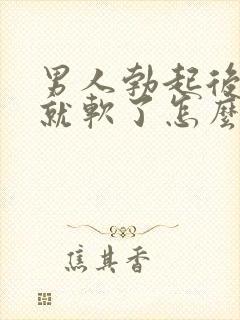 男人勃起後
就軟了怎麼
焦其香